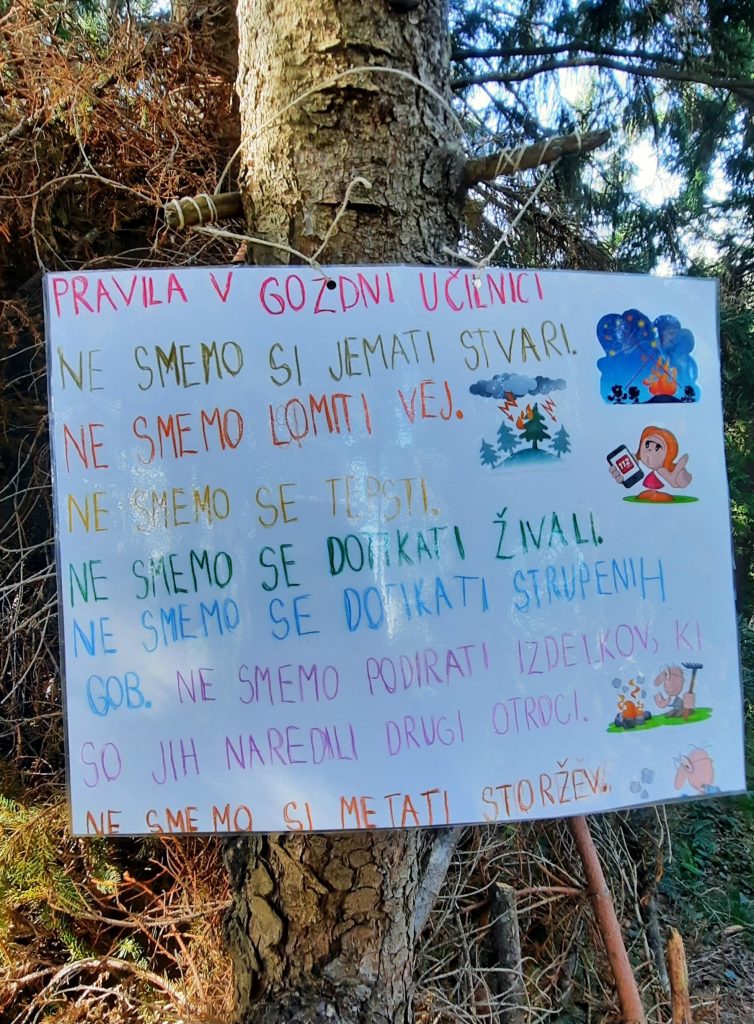 PRAVILA V GOZDNI UČILNICI
NE SMEMO SI JEMATI STVARI.
NE SMEMO LOMITI VEJ.
112
NE SMEMO SE TEPSTI.
NE SMEMO SE DOTIKATI ŽIVALI.
NE SMEMO SE DOTIKATI STRUPENIH
GOB. NE SMEMO PODIRATI IZDELKOV, KI
SO JIH NAREDILI DRUGI OTROCI.
NE SMEMO SI METATI STORŽEV.